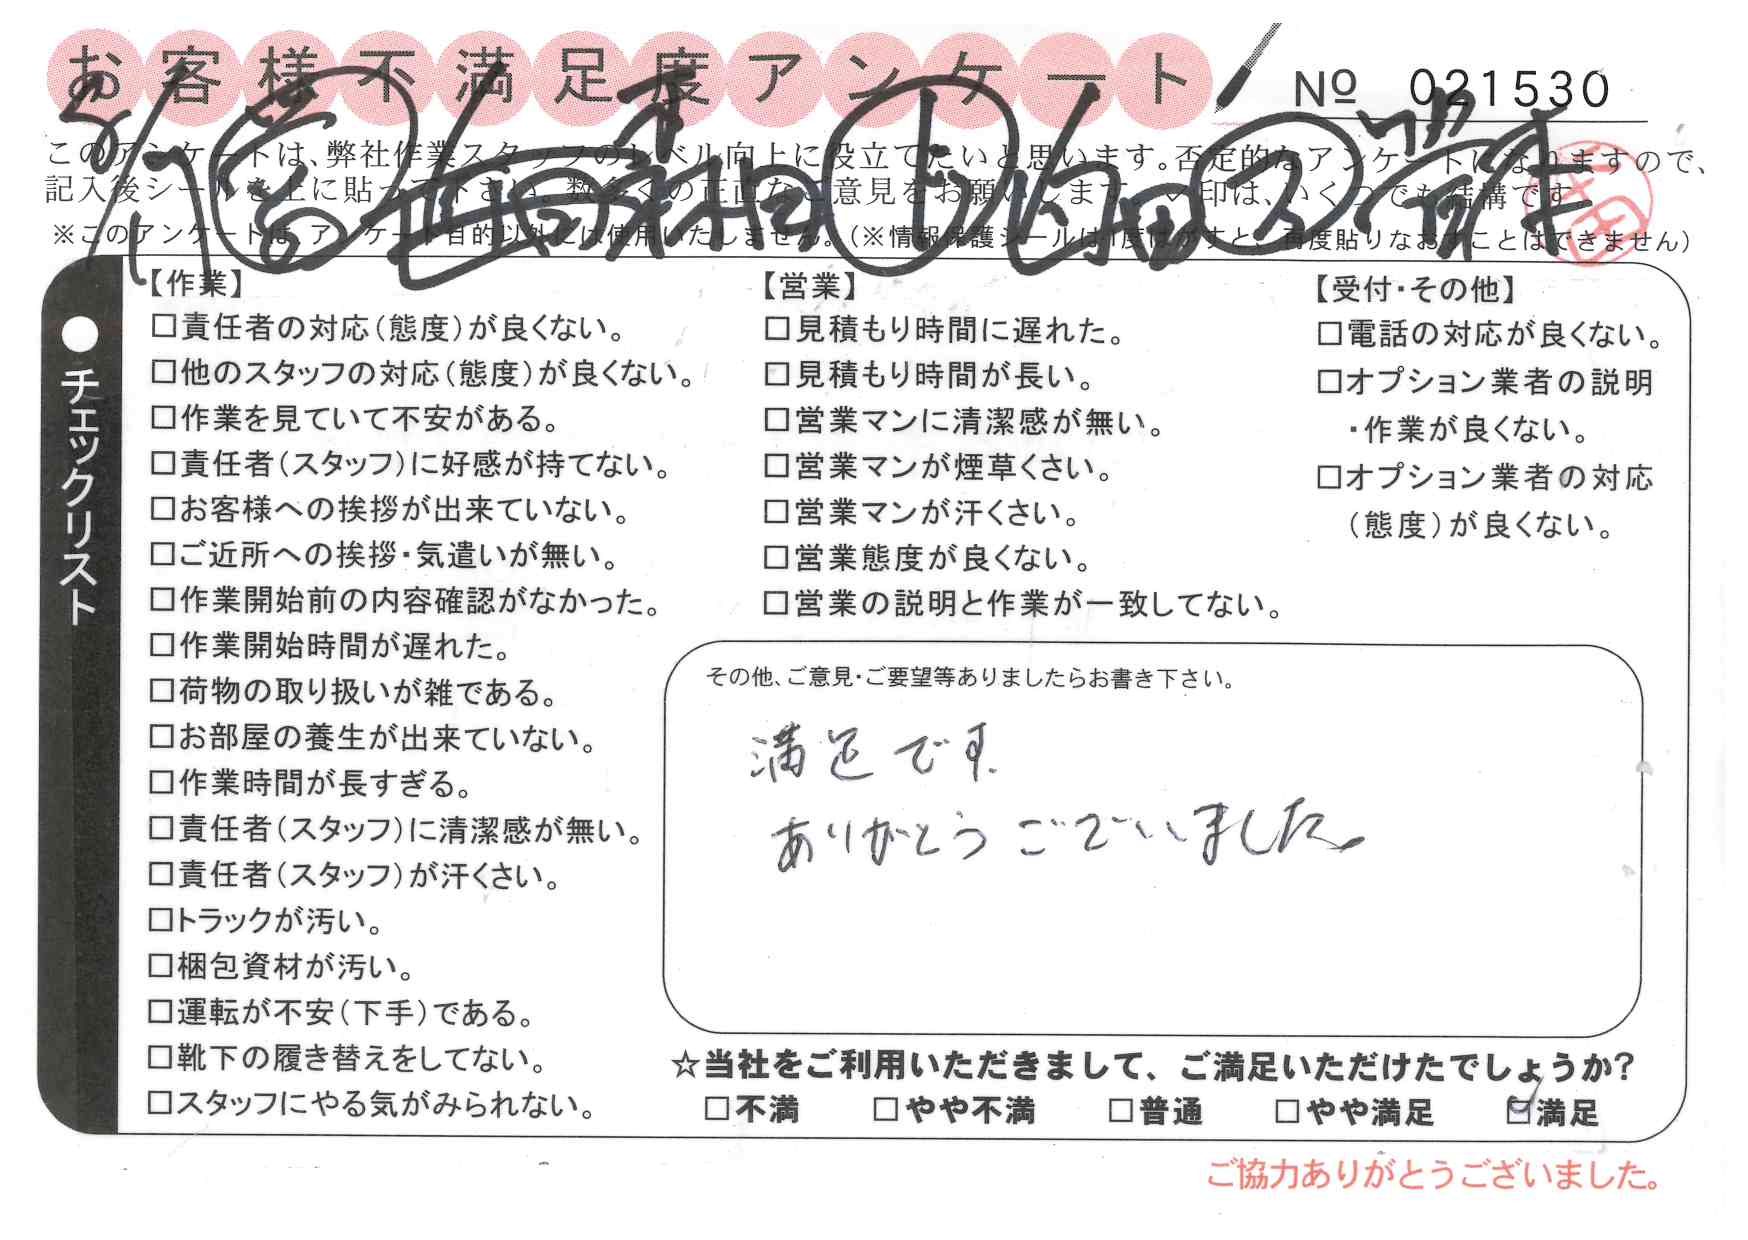 お客様不満足度アンケート
№ 021530
このアンケートは、弊社作業スタッフのレベル向上に役立てたいと思います。否定的なアンケートになりますので、
記入後シールを上に貼って下さい。数多くの正直なご意見をお願いします。✓印は、いくつでも結構です。
※このアンケートは、アンケート目的以外には使用いたしません。(※情報保護シールは1度はがすと、再度貼りなおすことはできません)
●チェックリスト
【作業】
□責任者の対応(態度)が良くない。
□他のスタッフの対応(態度)が良くない。
□作業を見ていて不安がある。
□責任者(スタッフ)に好感が持てない。
□お客様への挨拶が出来ていない。
□ご近所への挨拶・気遣いが無い。
□作業開始前の内容確認がなかった。
□作業開始時間が遅れた。
□荷物の取り扱いが雑である。
□お部屋の養生が出来ていない。
□作業時間が長すぎる。
□責任者(スタッフ)に清潔感が無い。
□責任者(スタッフ)が汗くさい。
□トラックが汚い。
□梱包資材が汚い。
□運転が不安(下手)である。
□靴下の履き替えをしてない。
□スタッフにやる気がみられない。
【営業】
□見積もり時間に遅れた。
□見積もり時間が長い。
□営業マンに清潔感が無い。
□営業マンが煙草くさい。
□営業マンが汗くさい。
□営業態度が良くない。
□営業の説明と作業が一致してない。
【受付・その他】
□電話の対応が良くない。
□オプション業者の説明
・作業が良くない。
□オプション業者の対応
(態度)が良くない。
その他、ご意見・ご要望等ありましたらお書き下さい。
満足です
ありがとうございました。
☆当社をご利用いただきまして、ご満足いただけたでしょうか?
□不満 □やや不満 □普通 □やや満足 ☑満足
ご協力ありがとうございました。